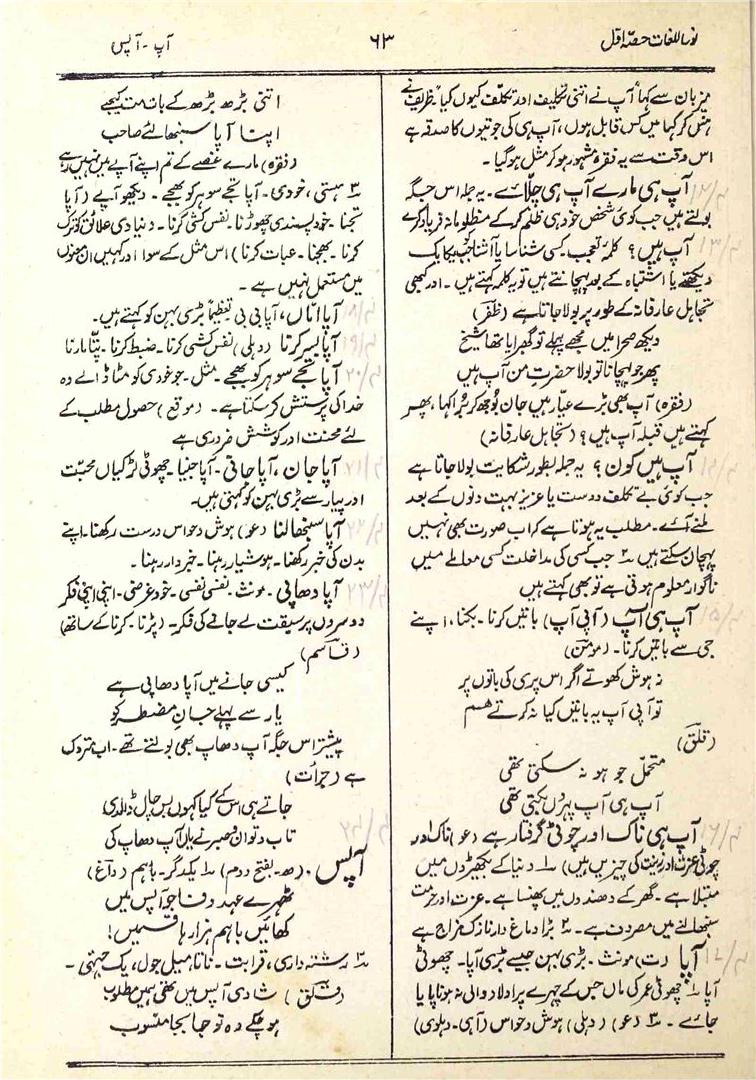 نور اللغات حصہ اول
۶۳
آپ - آپس
میزبان سے کہا آپ نے اتنی تکلیف اور تکلّف کیوں کیا۔ ظریف نے
ہنس کر کہا میں کس قابل ہوں، آپ ہی کی جوتیوں کا صدقہ ہے
اس وقت سے یہ فقرہ مشہور ہو کر مثل ہو گیا۔
آپ ہی مارے آپ ہی چلّائے۔ یہ جملہ اس جگہ
بولتے ہیں جب کوئی شخص خود ہی ظلم کرکے مظلومانہ فریاد کرے
آپ ہیں؟ کلمۂ تعجب۔ کسی شناسا یا آشنا کو یکایک
دیکھتے یا اشتباہ کے بعد پہچانتے ہیں تو یہ کلمہ کہتے ہیں۔ اور کبھی
تجاہل عارفانہ کے طور پر بولا جاتا ہے (ظفر)
دیکھ صحرا میں مجھے پہلے تو گھبرایا تھا شیخ
پھر جو پہچانا تو بولا حضرتِ من آپ ہیں
(فقرہ) آپ بھی بڑے عیّار ہیں جان بوجھ کر بُرا کہا، پھر
کہتے ہیں قبلہ آپ ہیں؟ (تجاہل عارفانہ)
آپ ہیں کون؟ یہ جملہ بطور شکایت بولا جاتا ہے
جب کوئی بے تکلف دوست یا عزیز بہت دنوں کے بعد
ملنے آئے۔ مطلب یہ ہوتا ہے کہ اب صورت بھی نہیں
پہچان سکتے ہیں ۲ جب کسی کی مداخلت کسی معاملے میں
ناگوار معلوم ہوتی ہے تو بھی کہتے ہیں
آپ ہی آپ (آپی آپ) باتیں کرنا۔ بکنا، اپنے
جی سے باتیں کرنا۔ (مومن)
نہ ہوش کھوتے اگر اس پری کی باتوں پر
تو آپی آپ یہ باتیں کیا نہ کرتے ہم
(قلق)
متحمّل جو ہو نہ سکتی تھی
آپ ہی آپ پہروں بکتی تھی
آپ ہی ناک اور چوٹی گرفتار ہے (عو) (ناک اور
چوٹی عزت اور زینت کی چیزیں ہیں) ۱ دنیا کے بکھیڑوں میں
مبتلا ہے۔ گھر کے دھندوں میں پھنسا ہے۔ عزت اور حرمت
سنبھالنے میں مصروف ہے۔ ۲ بڑا دماغ دار نازک مزاج ہے
آپا (ت) مونث۔ بڑی بہن جیسے بڑی آپا۔ چھوٹی
آپا ۲ چھوٹی عمر کی ماں جس کے چہرے پر اولاد والی نہ ہونا پایا
جائے۔ ۳ (عو) (دہلی) ہوش و حواس (آہی۔ دہلوی)
اتنی بڑھ بڑھ کے بات مت کیجے
اپنا آپا سنبھالئے صاحب
(فقرہ) مارے غصے کے تم اپنے آپے میں نہیں رہے
۴ ہستی، خودی۔ آپا تجے سو ہر کو بھجے۔ دیکھو آپے (آپا
تجنا۔ خود پسندی چھوڑنا۔ نفس کشی کرنا۔ دنیاوی علائق کو ترک
کرنا۔ بھجنا۔ عبادت کرنا) اس مثل کے سوا اور کہیں ان معنوں
میں مستعمل نہیں ہے۔
آپا امّاں، آپا بی بی تعظیماً بڑی بہن کو کہتے ہیں۔
آپا بسر کرنا (دہلی) نفس کشی کرنا۔ ضبط کرنا۔ پِتّا مارنا
آپا تجے سو ہر کو بھجے۔ مثل۔ جو خودی کو مٹا ڈالے وہ
خدا کی پرستش کر سکتا ہے۔ (موقع) حصول مطلب کے
لئے محنت اور کوشش ضروری ہے
آپا جان، آپا جانی۔ آپا جنیا۔ چھوٹی لڑکیاں محبّت
اور پیار سے بڑی بہن کو کہتی ہیں۔
آپا سنبھالنا (عو) ہوش و حواس درست رکھنا۔ اپنے
بدن کی خبر رکھنا۔ ہوشیار رہنا۔ خبردار رہنا۔
آپا دھاپی۔ مونث۔ نفسی نفسی۔ خود غرضی۔ اپنی اپنی فکر
دوسروں پر سبقت لے جانے کی فکر۔ (پڑنا۔ کرنا کے ساتھ)
(قاسم)
کیسی جانے میں آپا دھاپی ہے
یار سے پہلے جانِ مضطر کو
پیشتر اس جگہ آپ دھاپ بھی بولتے تھے۔ اب متروک
ہے (جرأت)
جاتے ہی اس کے کیا کہوں بس چال ڈالدی
تاب و توان و صبر نے یاں آپ دھاپ کی
آپس۔ (ھ۔ بفتح دوم) ۱ یکدگر۔ باہم (داغ)
ٹھہرے عہد وفا جو آپس میں
کھائیں باہم ہزار ہا قسمیں!
۲ رشتہ داری، قرابت۔ ناتا میل جول، یک جہتی۔
(قلق) شادی آپس میں تھی ہمیں مطلوب
ہو چکے وہ تو جا بجا منسوب